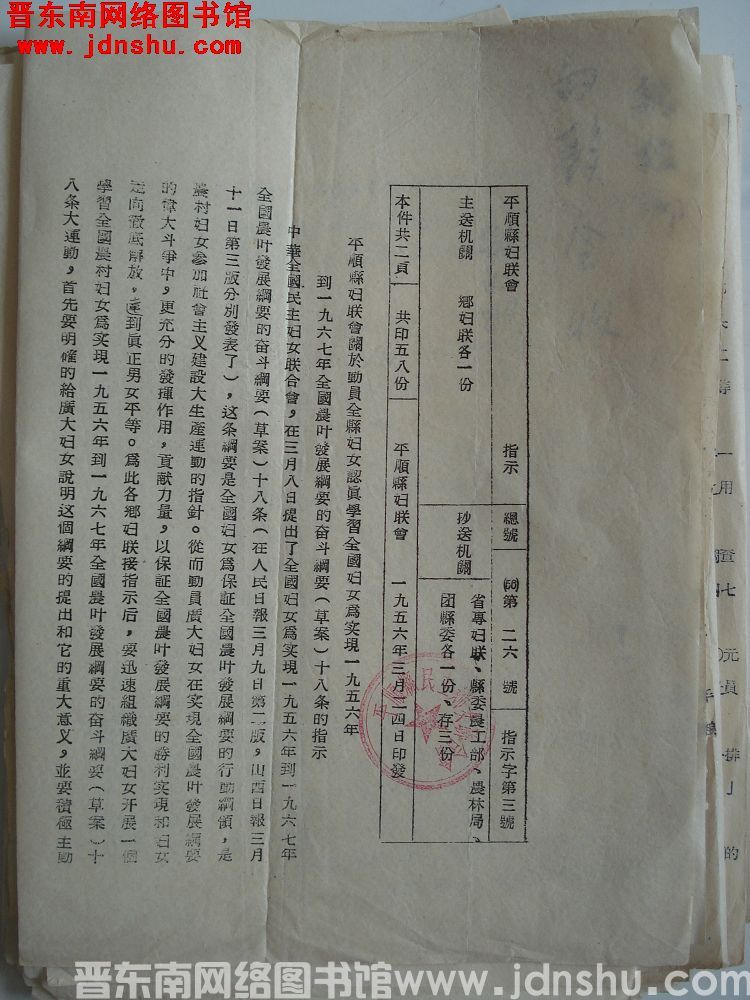 晋东南网络图书馆 www.jdnshu.com
www.jdnshu.com
平順縣妇联會 指示 總號 (56)第二六號 指示字第三號
主送机關 鄉妇联各一份 抄送机關 省專妇联、縣委農工部、農林局、
团縣委各一份、存三份
本件共二頁 共印五八份 平順縣妇联會 一九五六年三月一四日印發
平順縣妇联會關於動員全縣妇女認眞學習全國妇女爲实現一九五六年
到一九六七年全國農叶發展綱要的奋斗綱要(草案)十八条的指示
中華全國民主妇女联合會,在三月八日提出了全國妇女爲实現一九五六年到一九六七年
全國農叶發展綱要的奋斗綱要(草案)十八条(在人民日報三月九日第二版,山西日報三月
十一日第三版分別發表了),这条綱要是全國妇女爲保証全國農叶發展綱要的行動綱領,是
農村妇女参加社會主义建設大生產運動的指針。從而動員廣大妇女在实現全國農叶發展綱要
的偉大斗爭中,更充分的發揮作用,貢献力量,以保証全國農叶發展綱要的勝利实現和妇女
走向徹底解放,達到眞正男女平等。爲此各鄉妇联接指示后,要迅速組織廣大妇女开展一個
學習全國農村妇女爲实現一九五六年到一九六七年全國農叶發展綱要的奋斗綱要(草案)十
八条大運動,首先要明確的給廣大妇女說明这個綱要的提出和它的重大意义,並要積極主動
晋东南网络图书馆 www.jdnshu.com